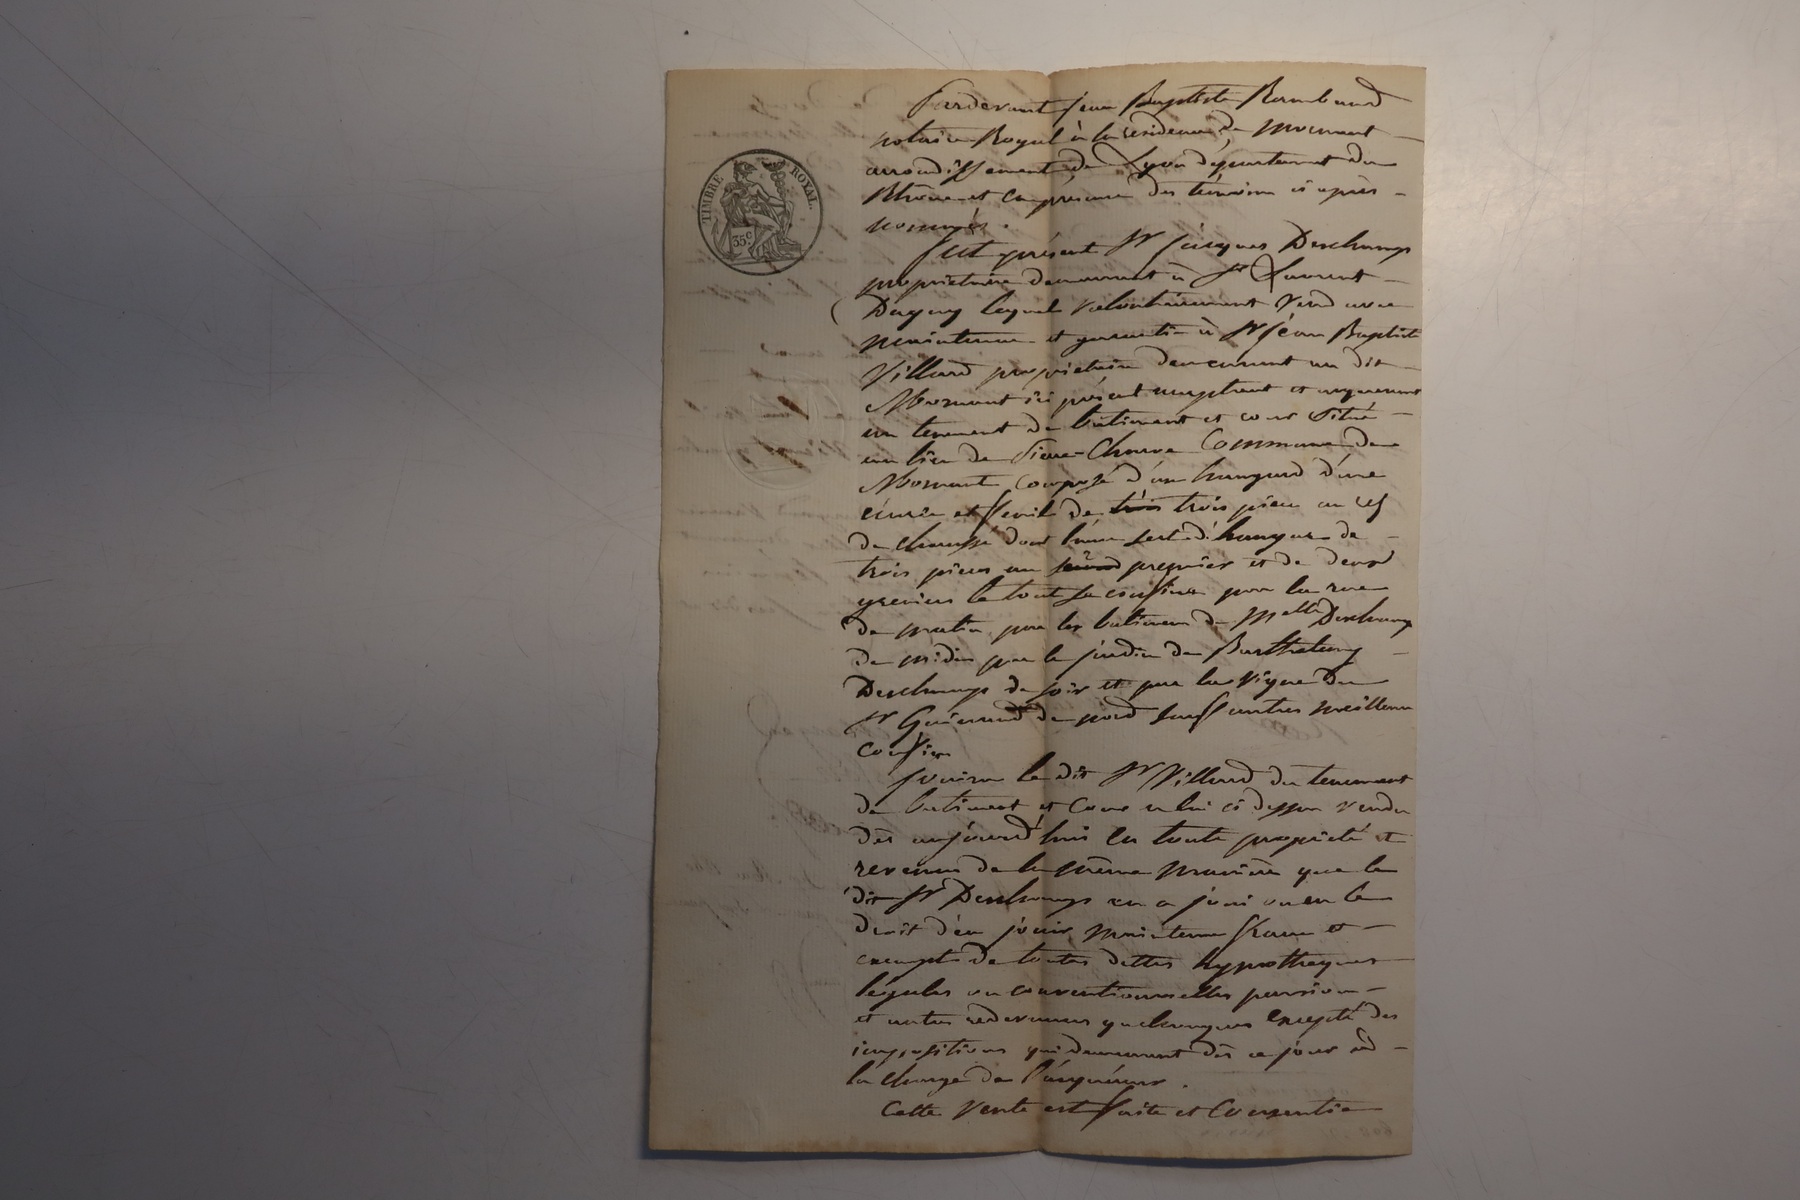 TIMBRE ROYAL.
35 c
Pardevant jean Baptiste Rambaud
notaire Royal à la résidence de Mornant
arrondissement de Lyon département du
Rhône et en présence des témoins ci après
nommés.
fut présent Sr jacques Deschamps
propriétaire demeurant à St Laurent
Dagny lequel volontairement vend avec
maintenue et garantie à Sr jean Baptiste
Villard propriétaire demeurant au dit
Mornant ici présent acceptant et acquerant
un tenement de batiment et cour situé
au lieu de Commune de
Mornant composé d'un hangard d'une
écurie et fenil de trois trois pieces au rez
de chaussé dont l'une sert d' de
trois pieces au second premier et de deux
greniers le tout se confine par la rue
de matin, par les batimens de Melle Deschamps
de midi par le jardin de Barthelemy
Deschamps de soir et par la vigne du
Sr de nord sauf autres meilleurs
confins
jouira le dit Sr Villard du tenement
de batiment et Cour a lui ci dessus vendu
dès aujourd'hui en toute propriété et
revenus de la même manière que le
dit Sr Deschamps en a joui ou eu le
droit d'en jouir maintenu franc et
exempt de toutes dettes hypotheques
légales ou conventionnelles pension
et autres redevances quelconques excepté des
impositions qui demeurent dès ce jour à
la charge de l'acquéreur.
Cette Vente est faite et Consentie